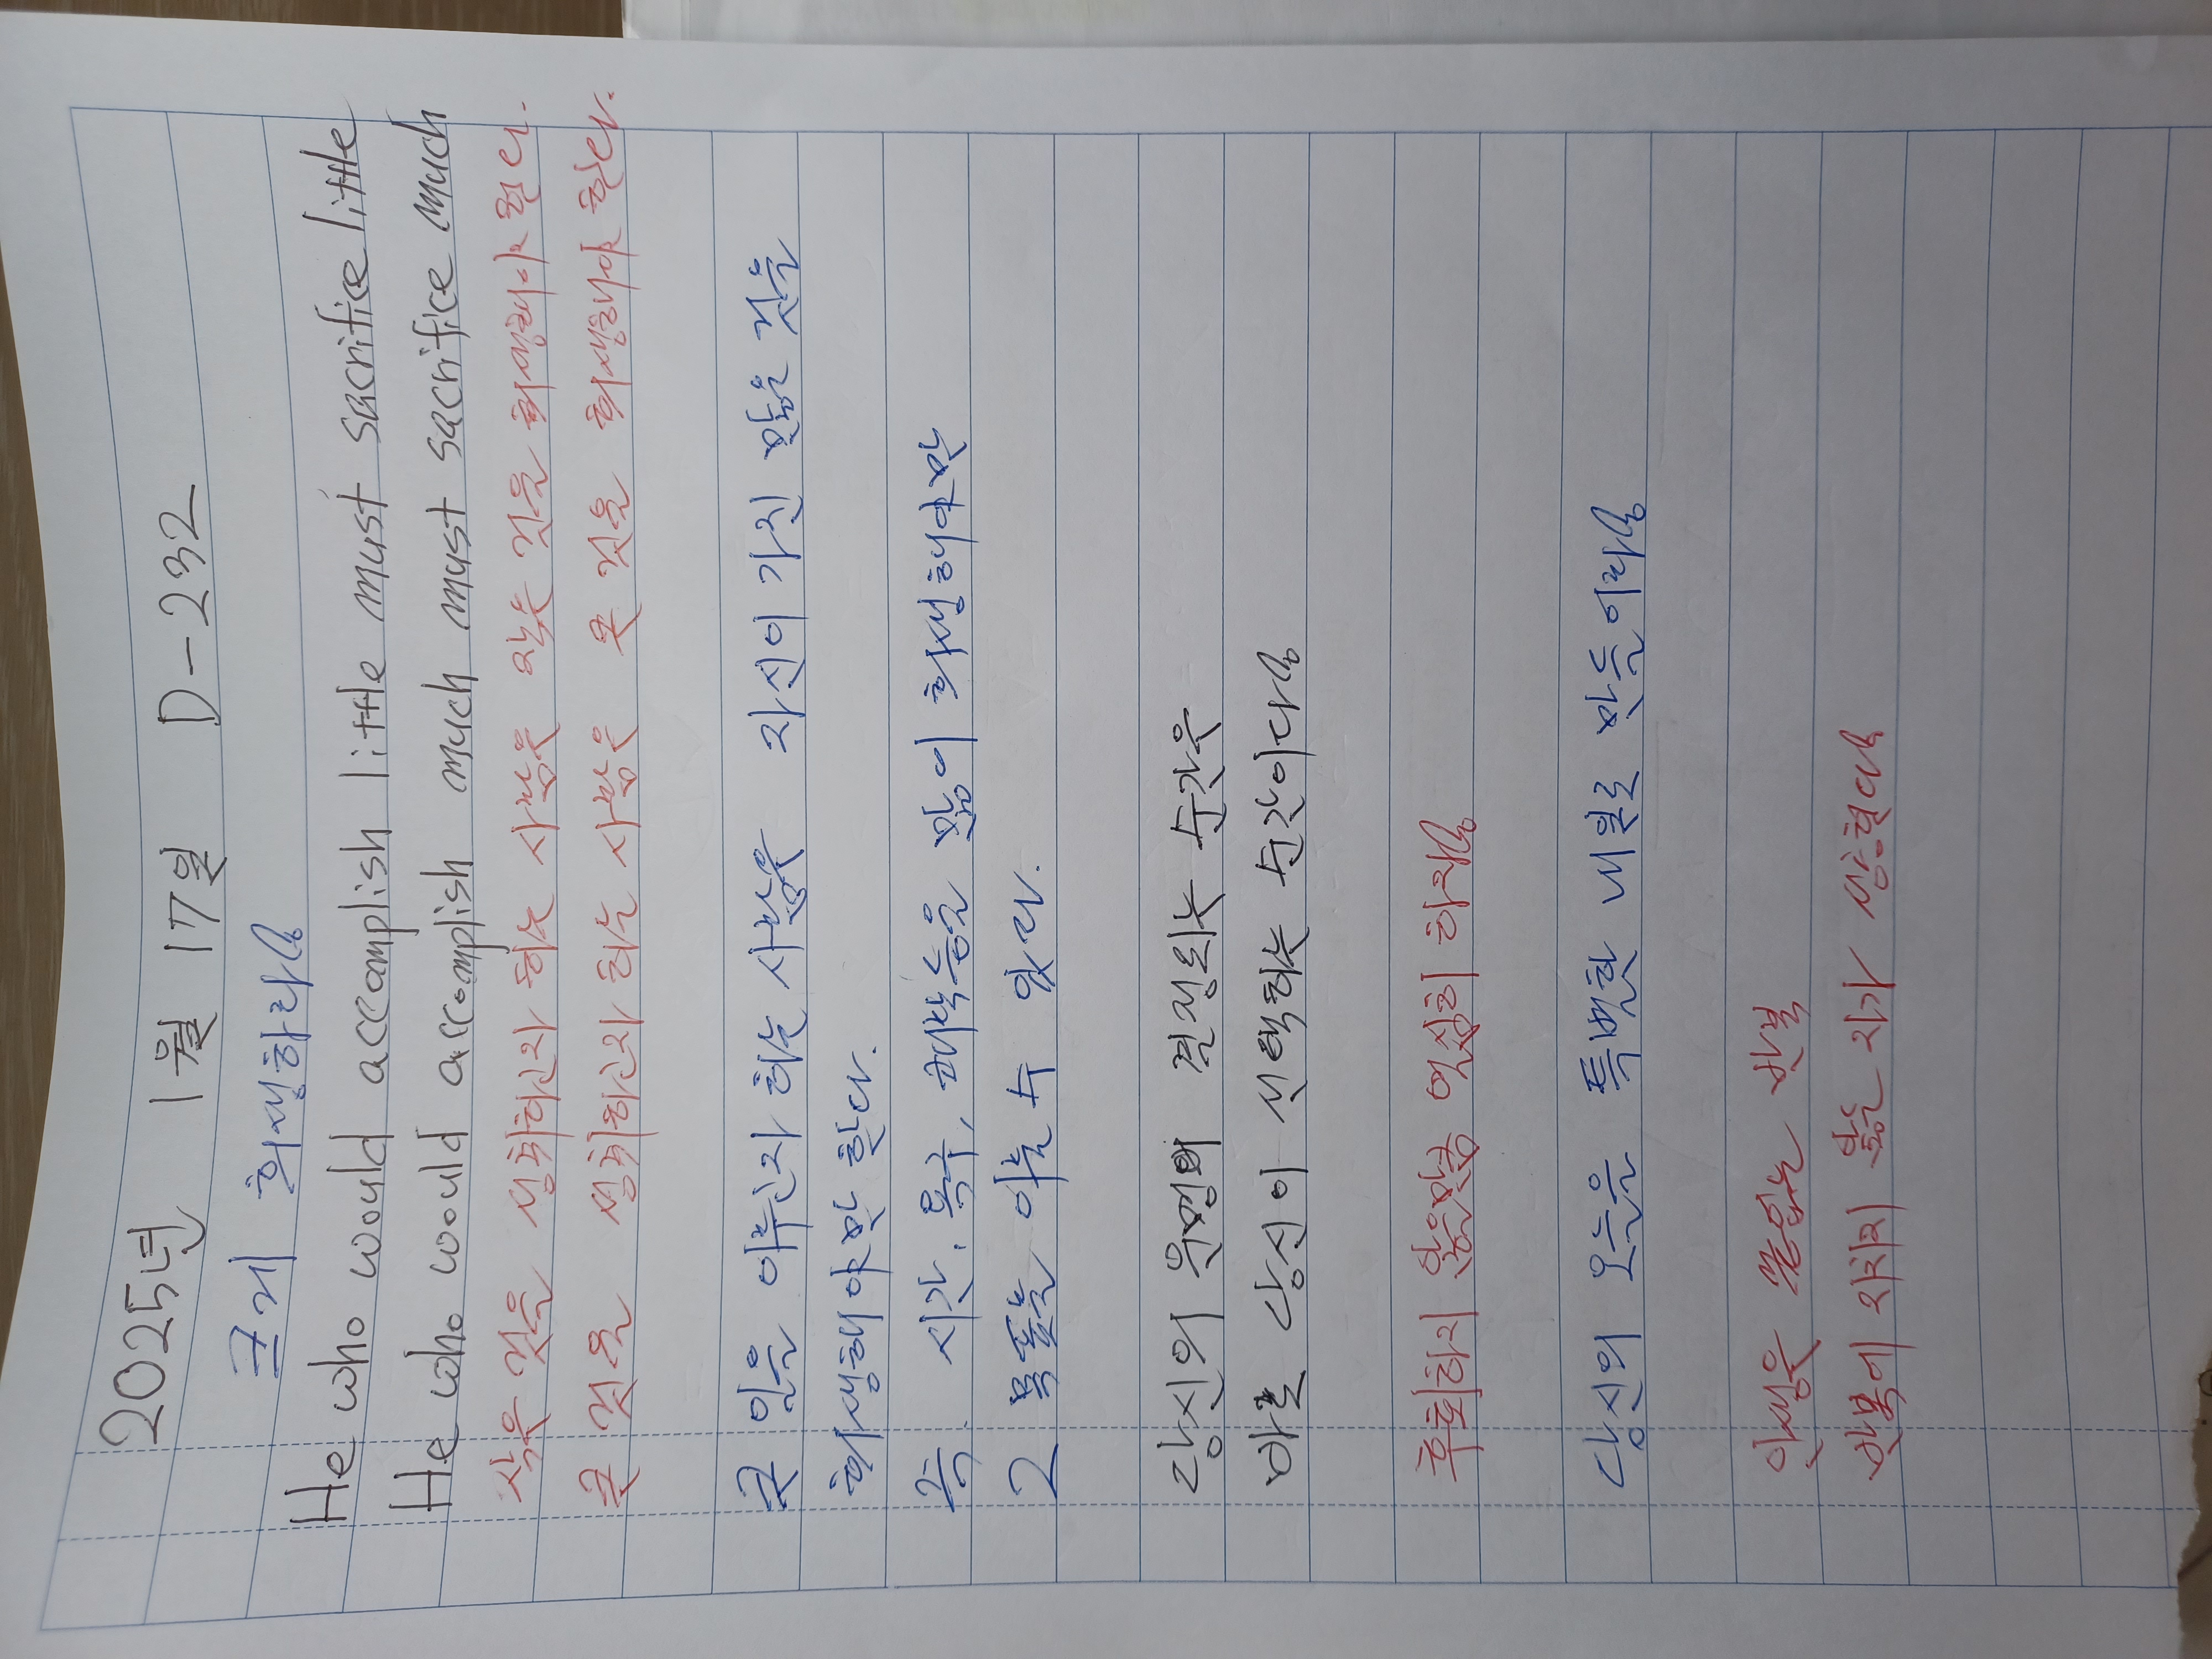 2025년 1월 17일 D-232
크게 희생하라
He who would accomplish little must sacrifice little
He who would accomplish much must sacrifice much
작은 것을 성취하고자 하는 사람은 작은 것을 희생해야 한다.
큰 것을 성취하고자 하는 사람은 큰 것을 희생해야 한다.
큰 일을 이루고자 하는 사람은 자신이 가진 많은 것을
희생해야만 한다.
즉. 시간, 욕구, 쾌락 등을 많이 희생해야만
그 목표를 이룰 수 있다.
당신의 운명의 결정되는 순간은
바로 당신이 선택하는 순간이다
후회하지 않을만큼 열심히 하라
당신의 오늘을 특별한 내일로 만들어라
인생은 끝없는 반복
반복에 지치지 않는 자가 성취한다